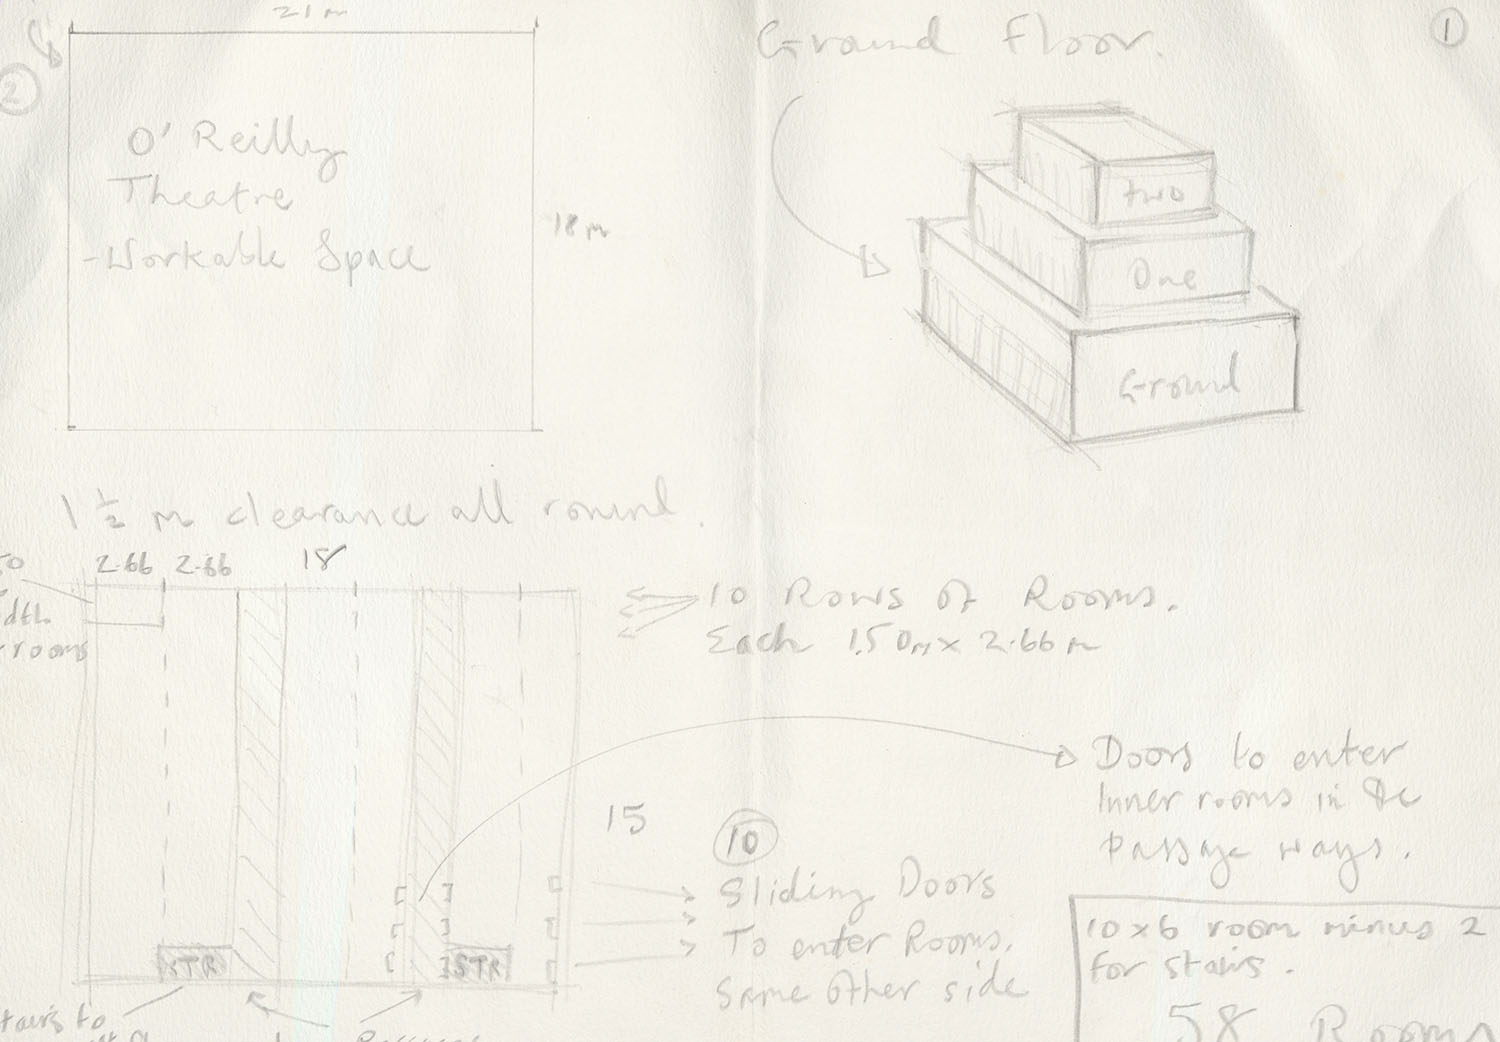 21 m
2
O' Reilly
Theatre
-Workable Space
18 m
1 ½ m clearance all round.
Ground Floor.
1
two
One
Ground
2.66 2.66 18
rooms
10 Rows of Rooms.
Each 1.50m x 2.66 m
Doors to enter
Inner rooms in the
passage ways.
15
10
Sliding Doors
To enter Rooms.
Same other side
STR
STR
10x6 room minus 2
for stairs.
58 Rooms